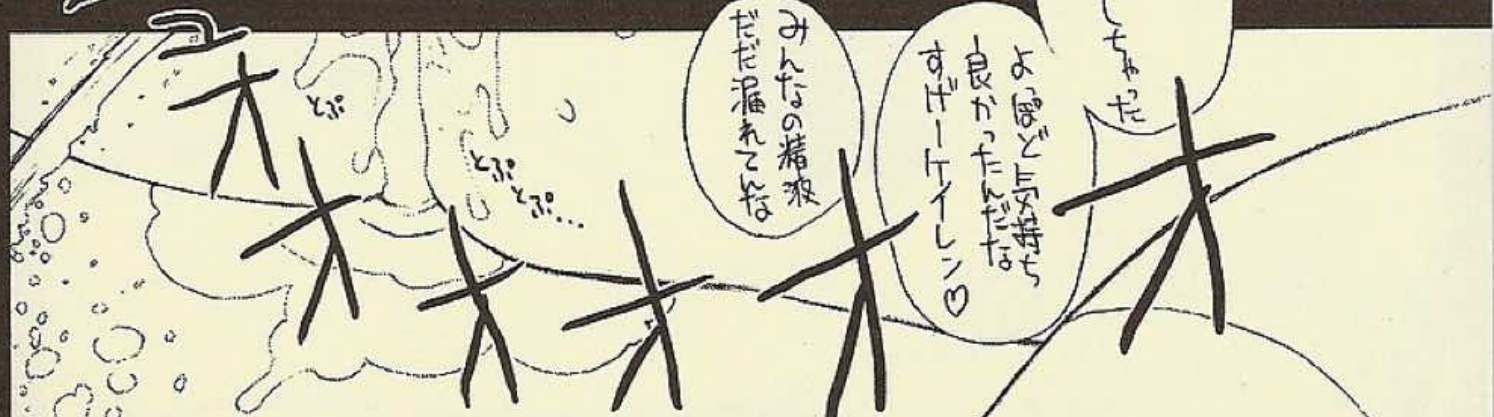 しちゃった
よっぽど気持ち
良かったんだな
すげーケイレン♡
みんなの精液
だだ漏れてんな
とぷ
とぷ
とぷ…